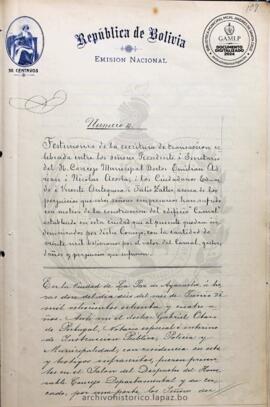 107
República de Bolivia
EMISION NACIONAL
50 CENTAVOS
GAMLP
DOCUMENTO
DIGITALIZADO
2024
Numero 2.
Testimonio de la escritura de transaccion ce
lebrada entre los señores Presidente i Secretario
del H. Concejo Municipal Doctor Emilian A
i Nicolas Acosta, i los Ciudadanos
i Vicente Antequera i Julio Valles, acerca de los
perjuicios que estos señores empresarios han sufrido
con motivo de la construccion del edificio "Camal"
establecido en esta ciudad que al presente quedan in
demnizados por dicho Concejo, con la cantidad de
veinte mil bolivianos por el valor del Camal, gastos,
daños y perjuicios que sufrieron.
En la Ciudad de La Paz de Ayacucho, á ho
ras doce del dia del mes de Enero de
mil ochocientos ochenta y cuatro a
ños. Ante mi el doctor Gabriel Chavez
de Portugal, Notario especial é interino
de Instruccion Publica, Policia y
Municipalidad, con residencia en esta
y testigos infrascritos, fueron presen
tes en el Salon del Despacho del Hono
rable Concejo Departamental y de
cado, por una parte los Señores doc
https://archivohistorico.lapaz.bo